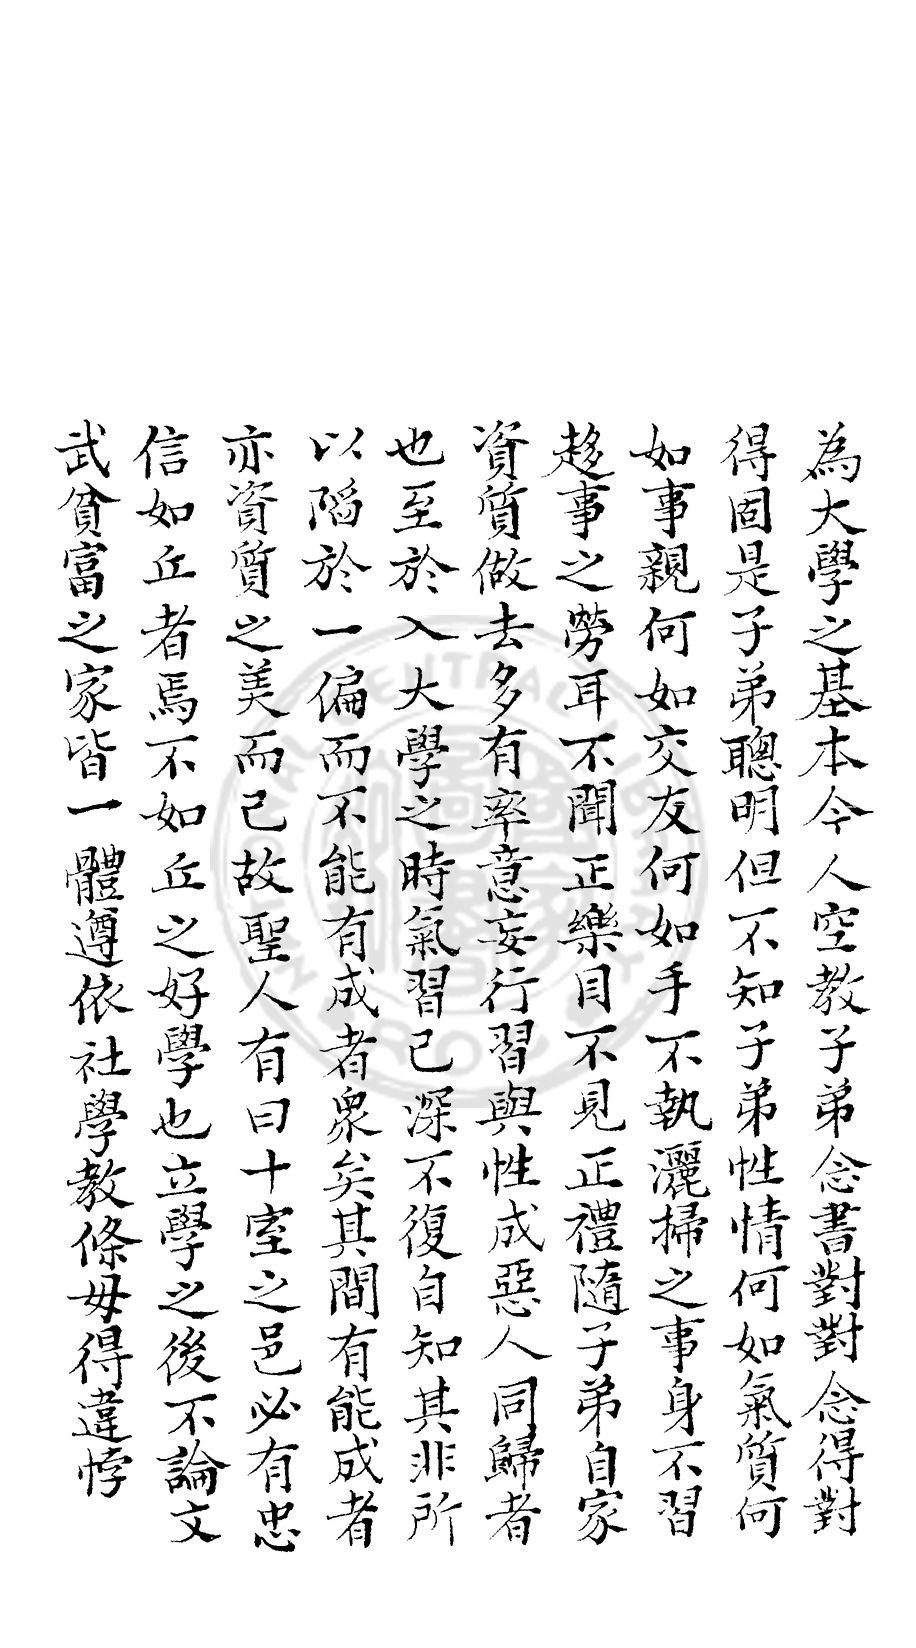 為大學之基本今人空教子弟念書對對念得對
得固是子弟聰明但不知子弟性情何如氣質何
如事親何如交友何如手不執灑掃之事身不習
趍事之勞耳不聞正樂目不見正禮隨子弟自家
資質做去多有率意妄行習與性成惡人同歸者
也至於入大學之時氣習已深不復自知其非所
以陷於一偏而不能有成者衆矣其間有能成者
亦資質之美而已故聖人有曰十室之邑必有忠
信如丘者焉不如丘之好學也立學之後不論文
武貧富之家皆一體遵依社學教條毋得違悖